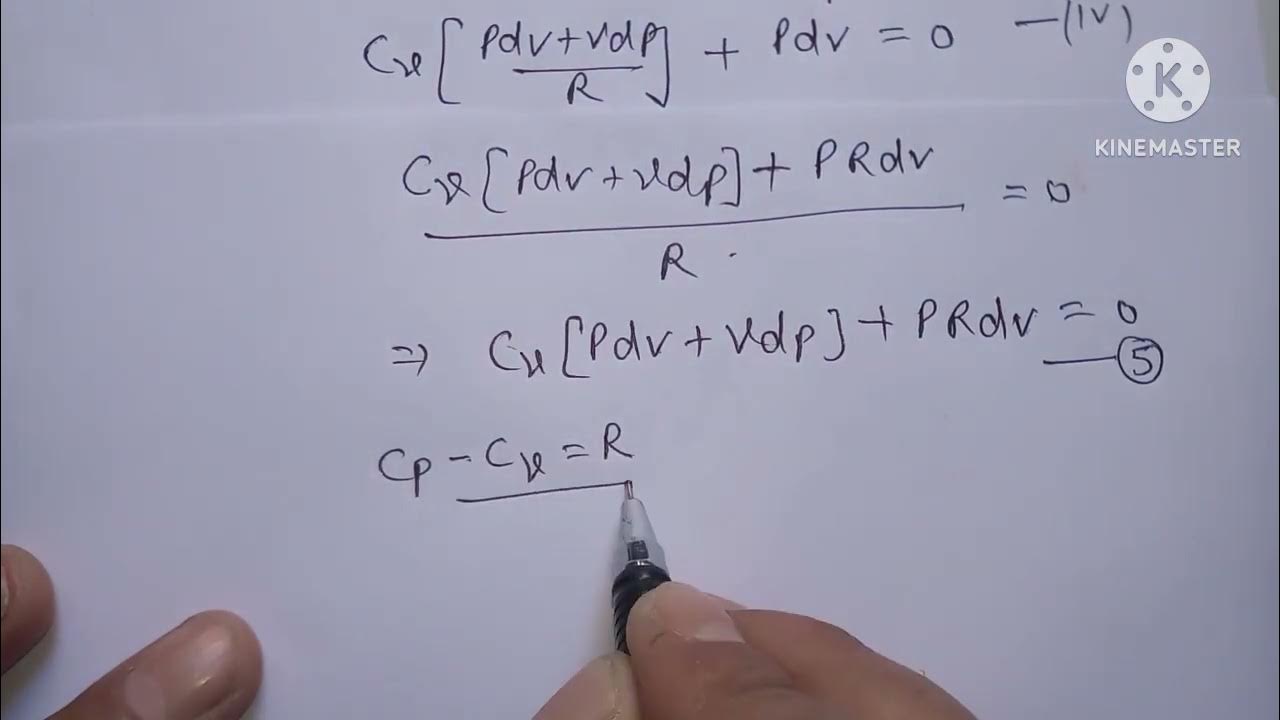 Cv[Pdv+vdp/R] + Pdv = 0 —(IV)
K
KINEMASTER
Cv[Pdv+vdp]+PRdv/R = 0
⇒ Cv[Pdv+vdp]+PRdv = 0 —⑤
Cp-Cv=R